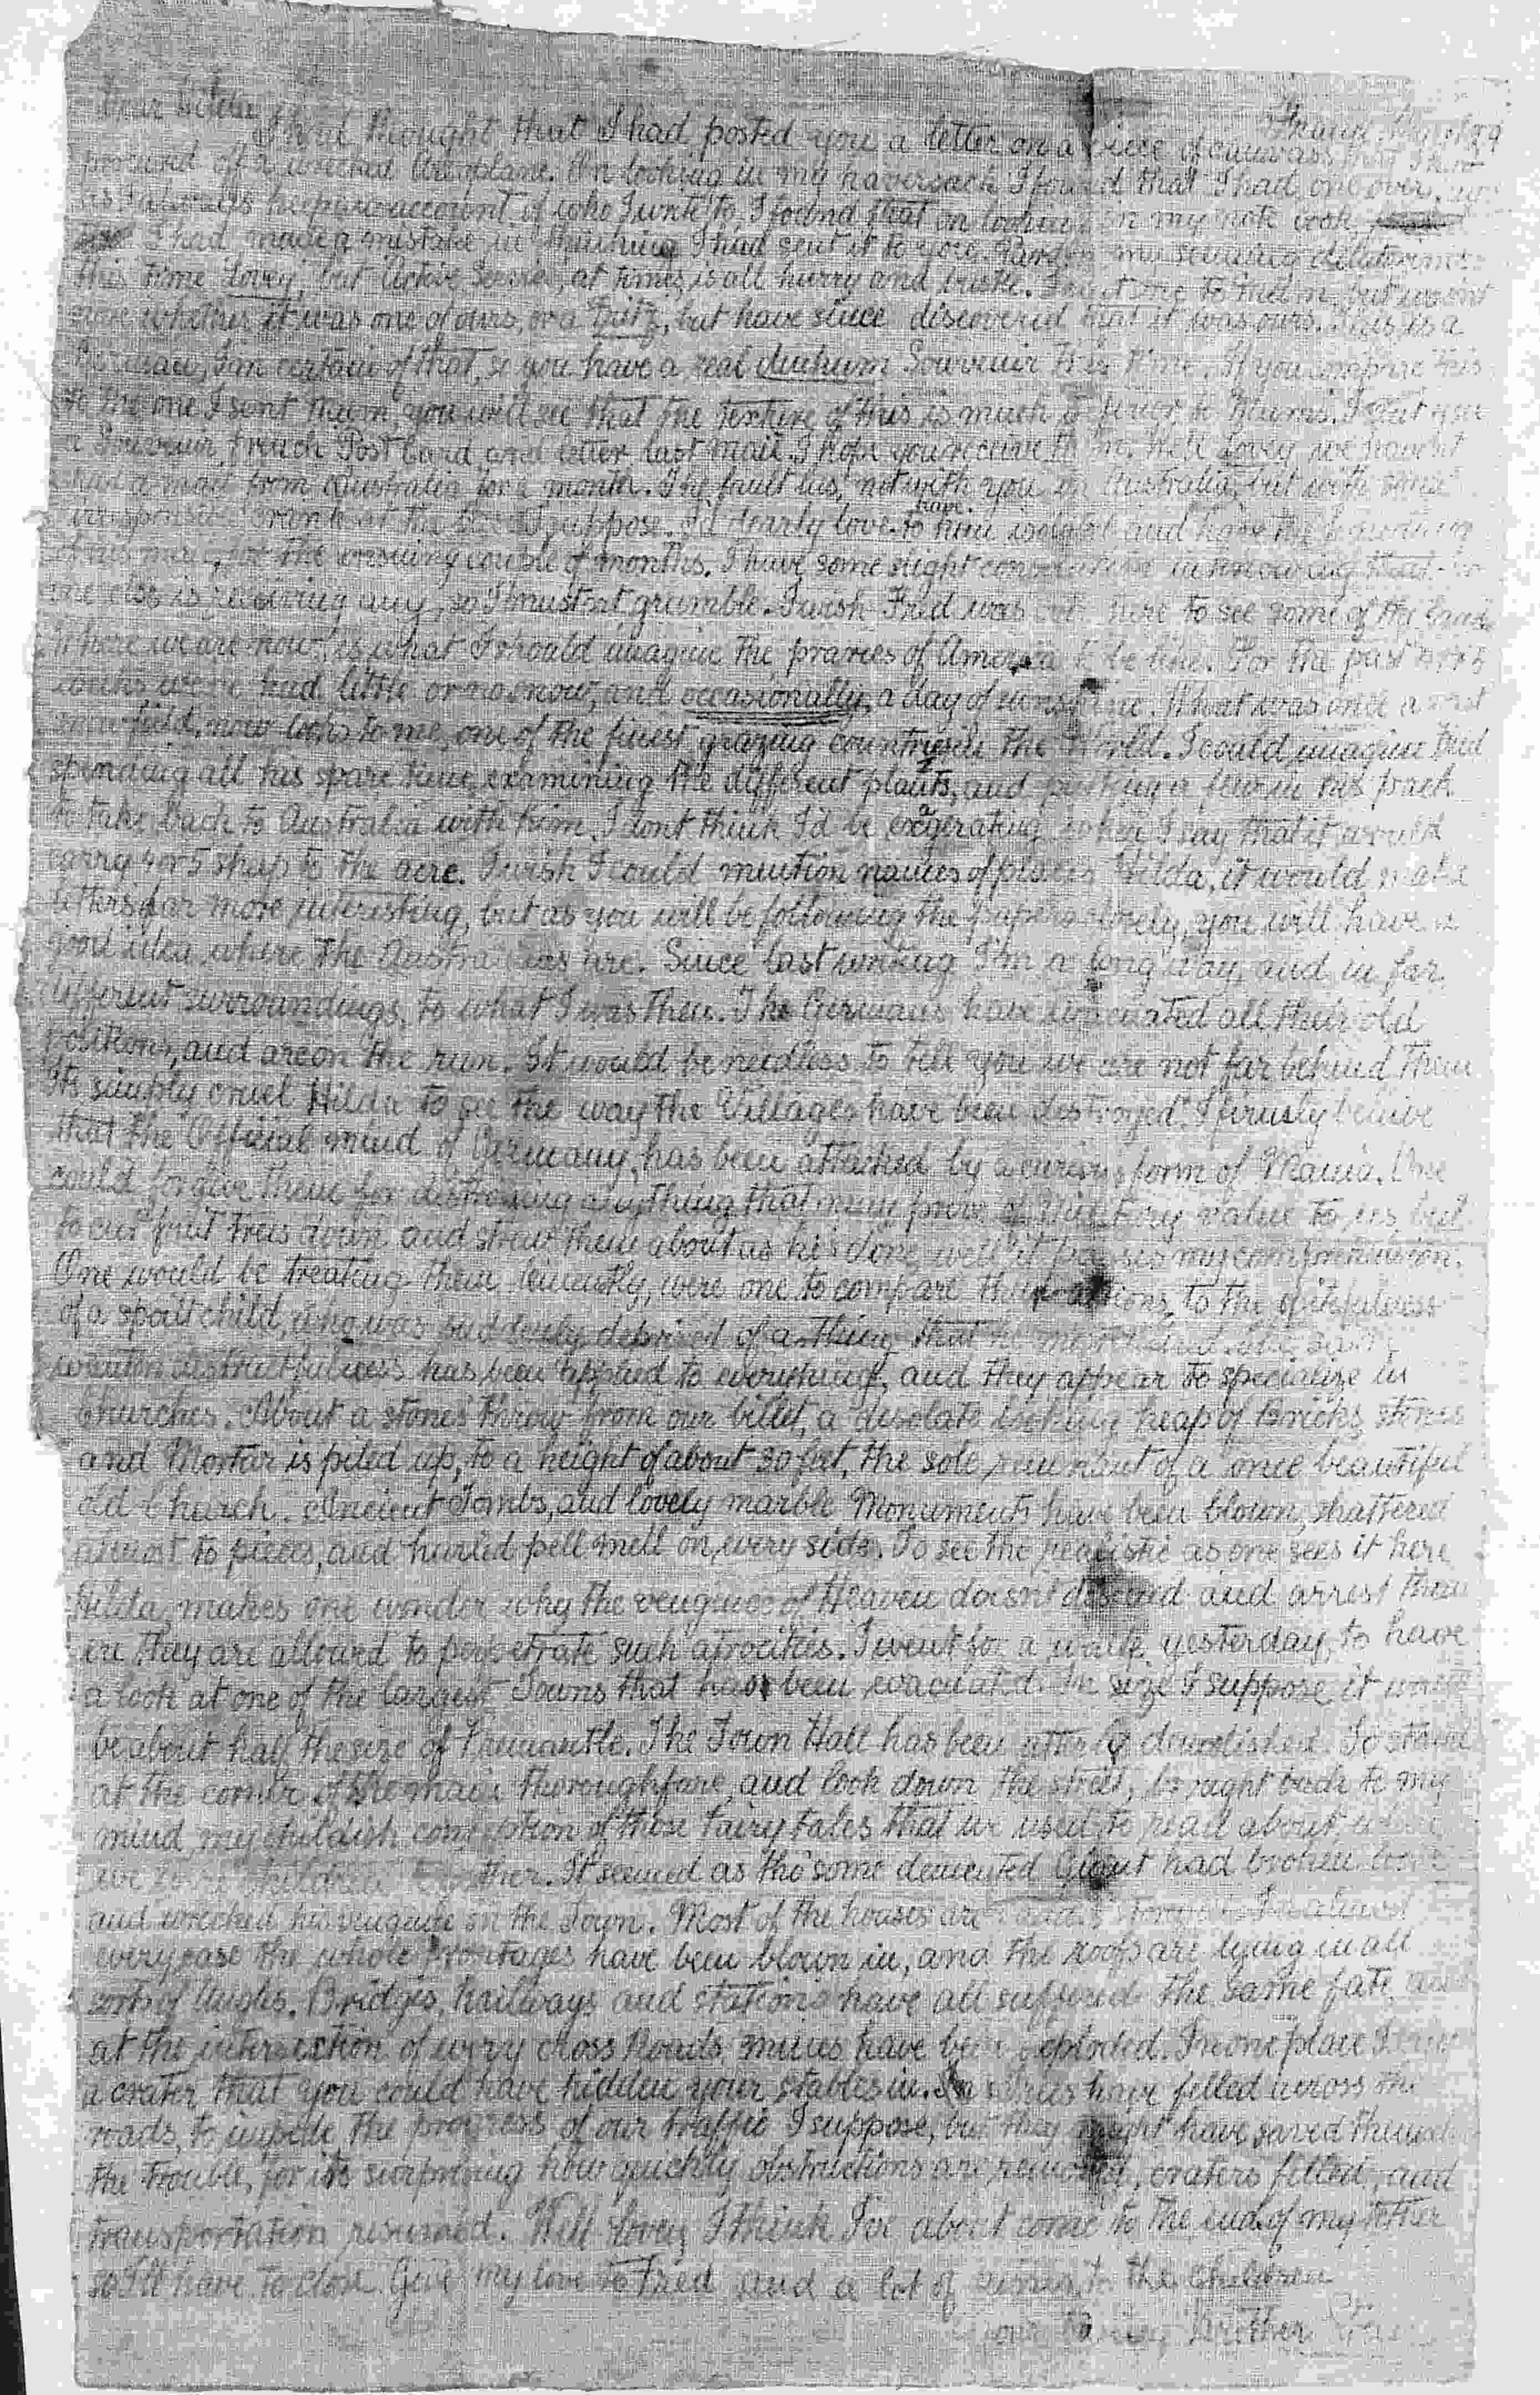 Dear Hilda
I had thought that I had posted you a letter on a piece of canvass that I
procured off a wrecked Aeroplane. On looking in my haversack I found that I had one over,
as I always keep an account of who I write to. I found that on looking in my note book
I had made a mistake in thinking I had sent it to you. Pardon my seeming
this time Lovey, but Active Service, at times, is all hurry and bustle. I sent one to Mum, but wasnt
sure whether it was one of ours, or a Fritz, but have since discovered that it was ours. This is a
German, I'm certain of that, so you have a real dinkum Souvenir this time. If you compare this
to the one I sent Mum, you will see that the texture of this is much finer to Mums. I sent you
a Souvenir, French Post Card and letter last mail. I hope you receive them. Well Lovey we havent
had a mail from Australia for a month. The fault lies, not with you in Australia, but with some
crank at the I suppose. I'd dearly love to have him and have the
of his mail for the ensuing couple of months. I have some slight consolation in knowing that no
one else is receiving any, so I mustnt grumble. I wish Fred was over here to see some of the land
Where we are now, is what I should imagine the praries of America to be like. For the past
weeks weve had little or no snow, and occasionally, a day of sunshine. What was once a vast
snow field, now looks to me, one of the finest grazing countrys in the World. I could imagine Fred
spending all his spare time examining the different plants, and putting a few in his pack
to take back to Australia with him. I dont think I'd be exagerating when I say that it would
carry 4 or 5 sheep to the acre. I wish I could mention names of places Hilda, it would make
letters far more interesting, but as you will be following the papers closely, you will have a
good idea where the Australians are. Since last writing I'm a long way, and in far
different surroundings, to what I was then. The Germans have evacuated all their old
positions, and are on the run. It would be needless to tell you we are not far behind them
Its simply cruel Hilda to see the way the Villages have been destroyed. I firmly believe
that the Official mind of Germany, has been attacked by a curious form of Mania. One
could forgive them for destroying anything that may prove of Military value to us, but
to cut fruit trees down and strew them about as he's done, well it passes my comprehension.
One would be treating them leniently, were one to compare their actions, to the spitefulness
of a spoilt child, who was suddenly deprived of a thing that he
wanton destructiveness has been applied to everything, and they appear to specialize in
Churches. About a stone's throw from our billet, a desolate looking heap of Bricks, stones
and Mortar is piled up, to a height of about 30 feet, the sole remnant of a once beautiful
old Church. Ancient Tombs, and lovely marble Monuments have been blown, shattered
almost to pieces, and hurled pell mell on every side. To see the realistic as one sees it here
Hilda, makes one wonder why the vengence of Heaven doesnt descend and arrest them
en they are allowed to perpetrate such atrocities. I went for a walk yesterday, to have
a look at one of the largest Towns that have been evacuated. In size I suppose it would
be about half the size of Fremantle. The Town Hall has been utterly demolished. To stand
at the corner of the main thoroughfare, and look down the street, brought back to my
mind, my childish conception of those fairy tales that we used to read about, when
we were children together. It seemed as tho' some demented Giant had broken loose
and wrecked his vengence on the Town. Most of the houses are In almost
every case the whole frontages have been blown in, and the roofs are lying in all
sorts of Angles. Bridges, Railways and stations have all suffered the same fate, and
at the intersection of every cross Roads mines have been exploded. In one place I saw
a crater, that you could have hidden your stables in. have felled across the
roads, to impede the progress of our traffic I suppose, but they might have saved themselves
the trouble, for its surprising how quickly obstructions are removed, craters filled, and
transportation resumed. Well Lovey, I think I've about come to the end of my tether
so I'll have to close. Give my love to Fred and a lot of kisses to the Children
Your loving Brother